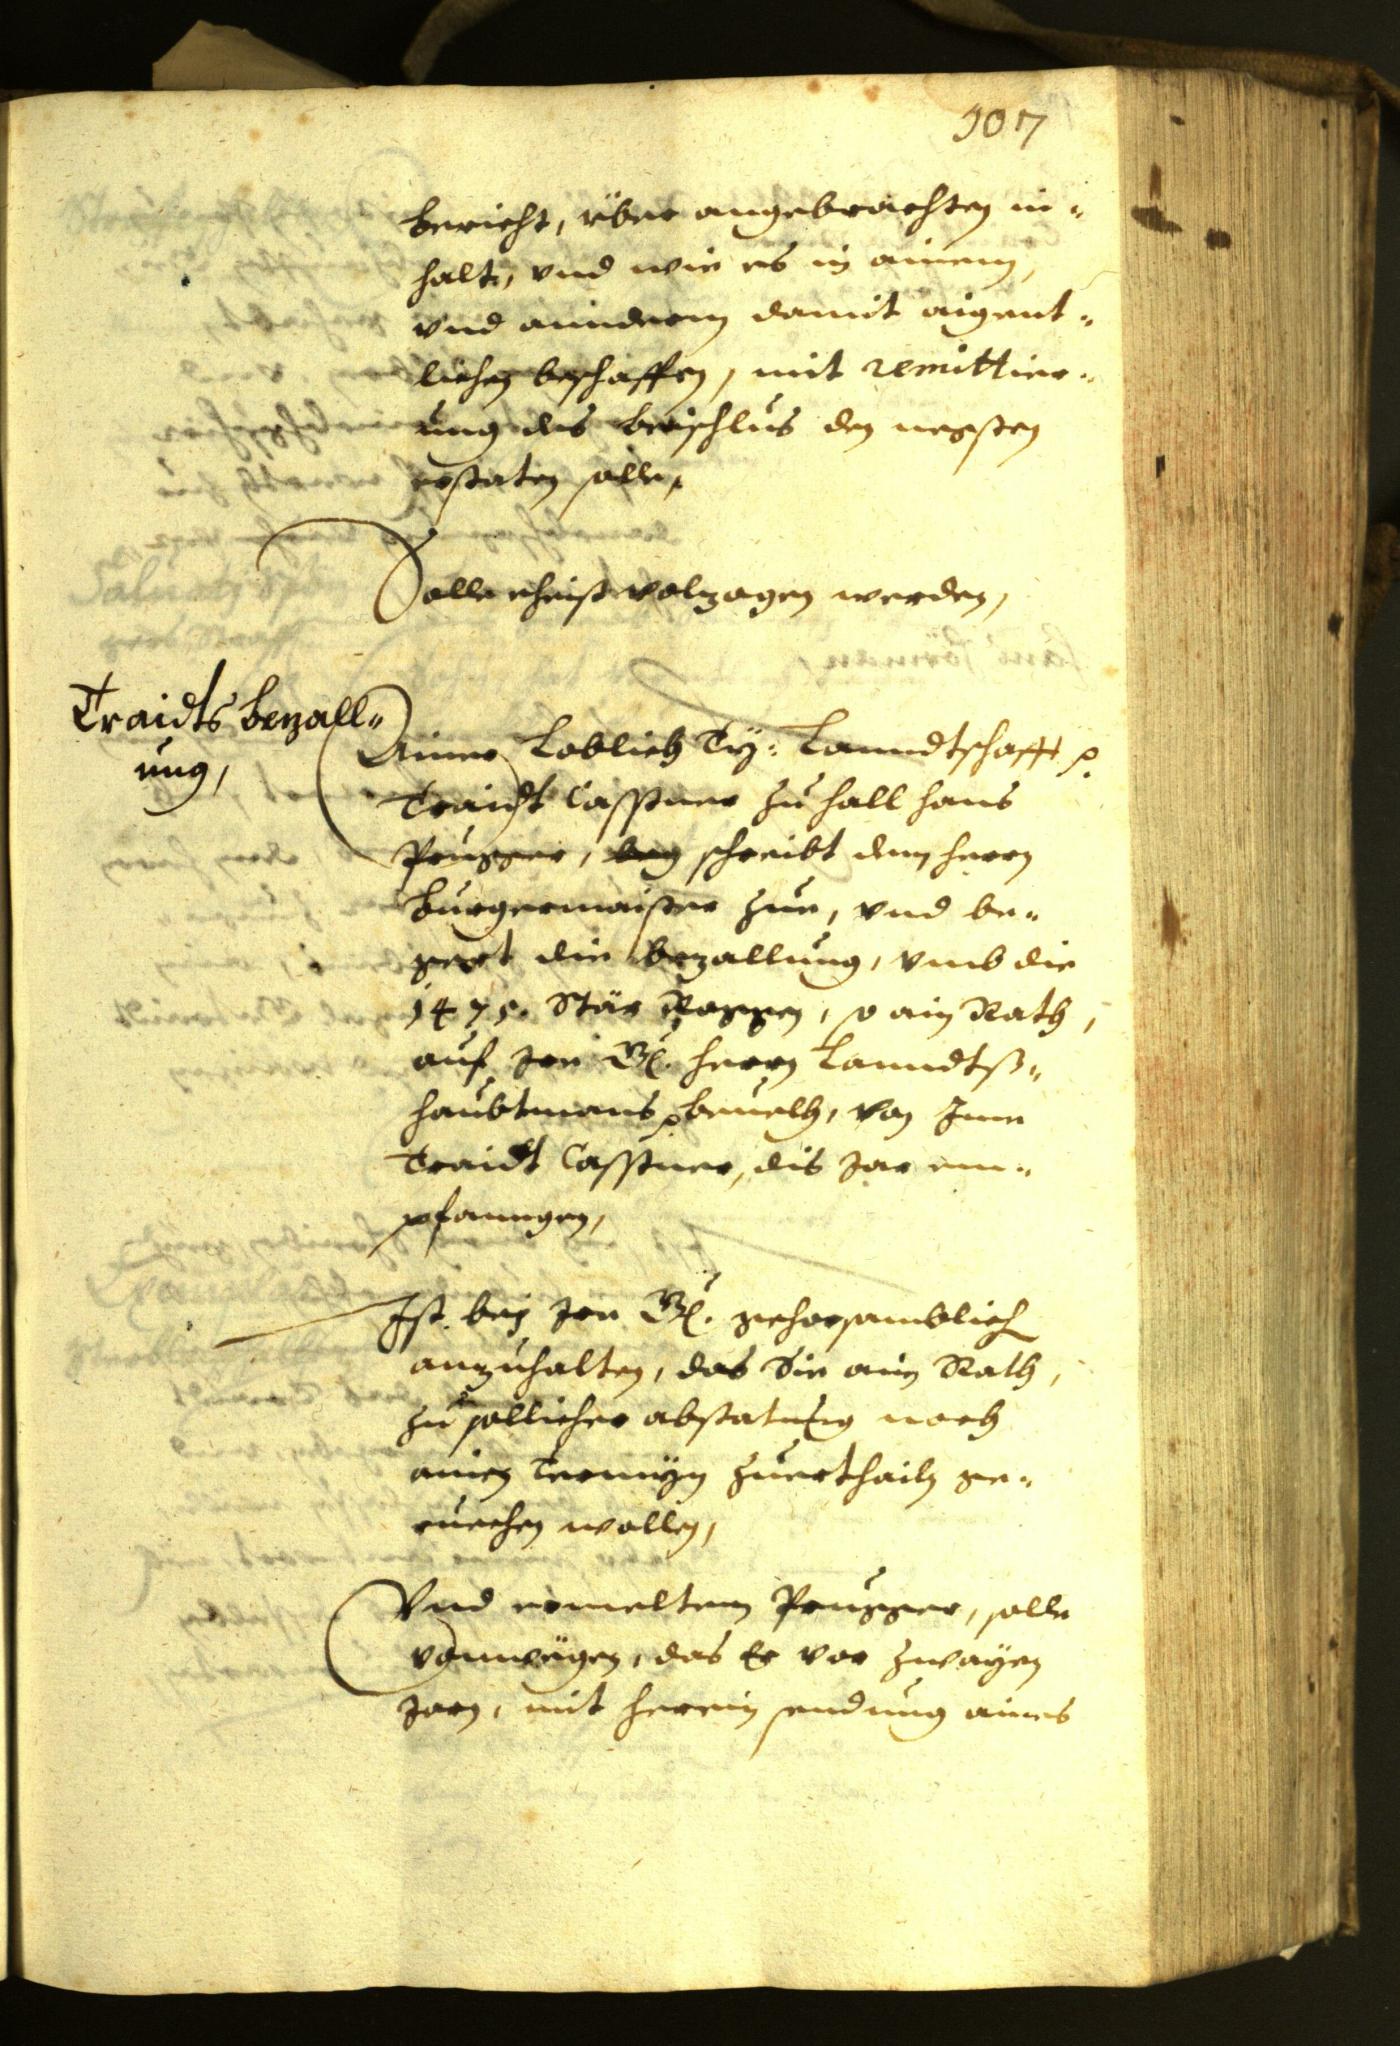 107
bericht, über angebrachten in-
halt, vnd wie es in ainem,
vnd annderm damit aigent-
lichen beschaffen, mit remittier-
ung des beischlus den negsten
erstaten solle,
Solle eheist volzogen werden,
Traidts bezall-
ung,
Ainer Loblich Ty: Lanndtschafft p.
Traidt Casstner zu Hall Hans
Prugger, schreibt dem herrn
Burgermaister zue, vnd be-
gert die bezallung, vmb die
1475. Stär Roggen, so ain Rath,
auf Ire G. herrn Lanndts-
haubtmans p beuelch, von Ime
Traidt Casstner, dis Jar em-
pfanngen,
Ist bey Ire G. gehorsamblich
anzuhalten, das Sie ain Rath,
zu sollicher abstatung noch
ainen Termyn zuerthailn ge-
ruechen wollen,
Vnd ermeltem Prugger, solle
das Er vor zwayen
Jarn, mit herein sendung aines